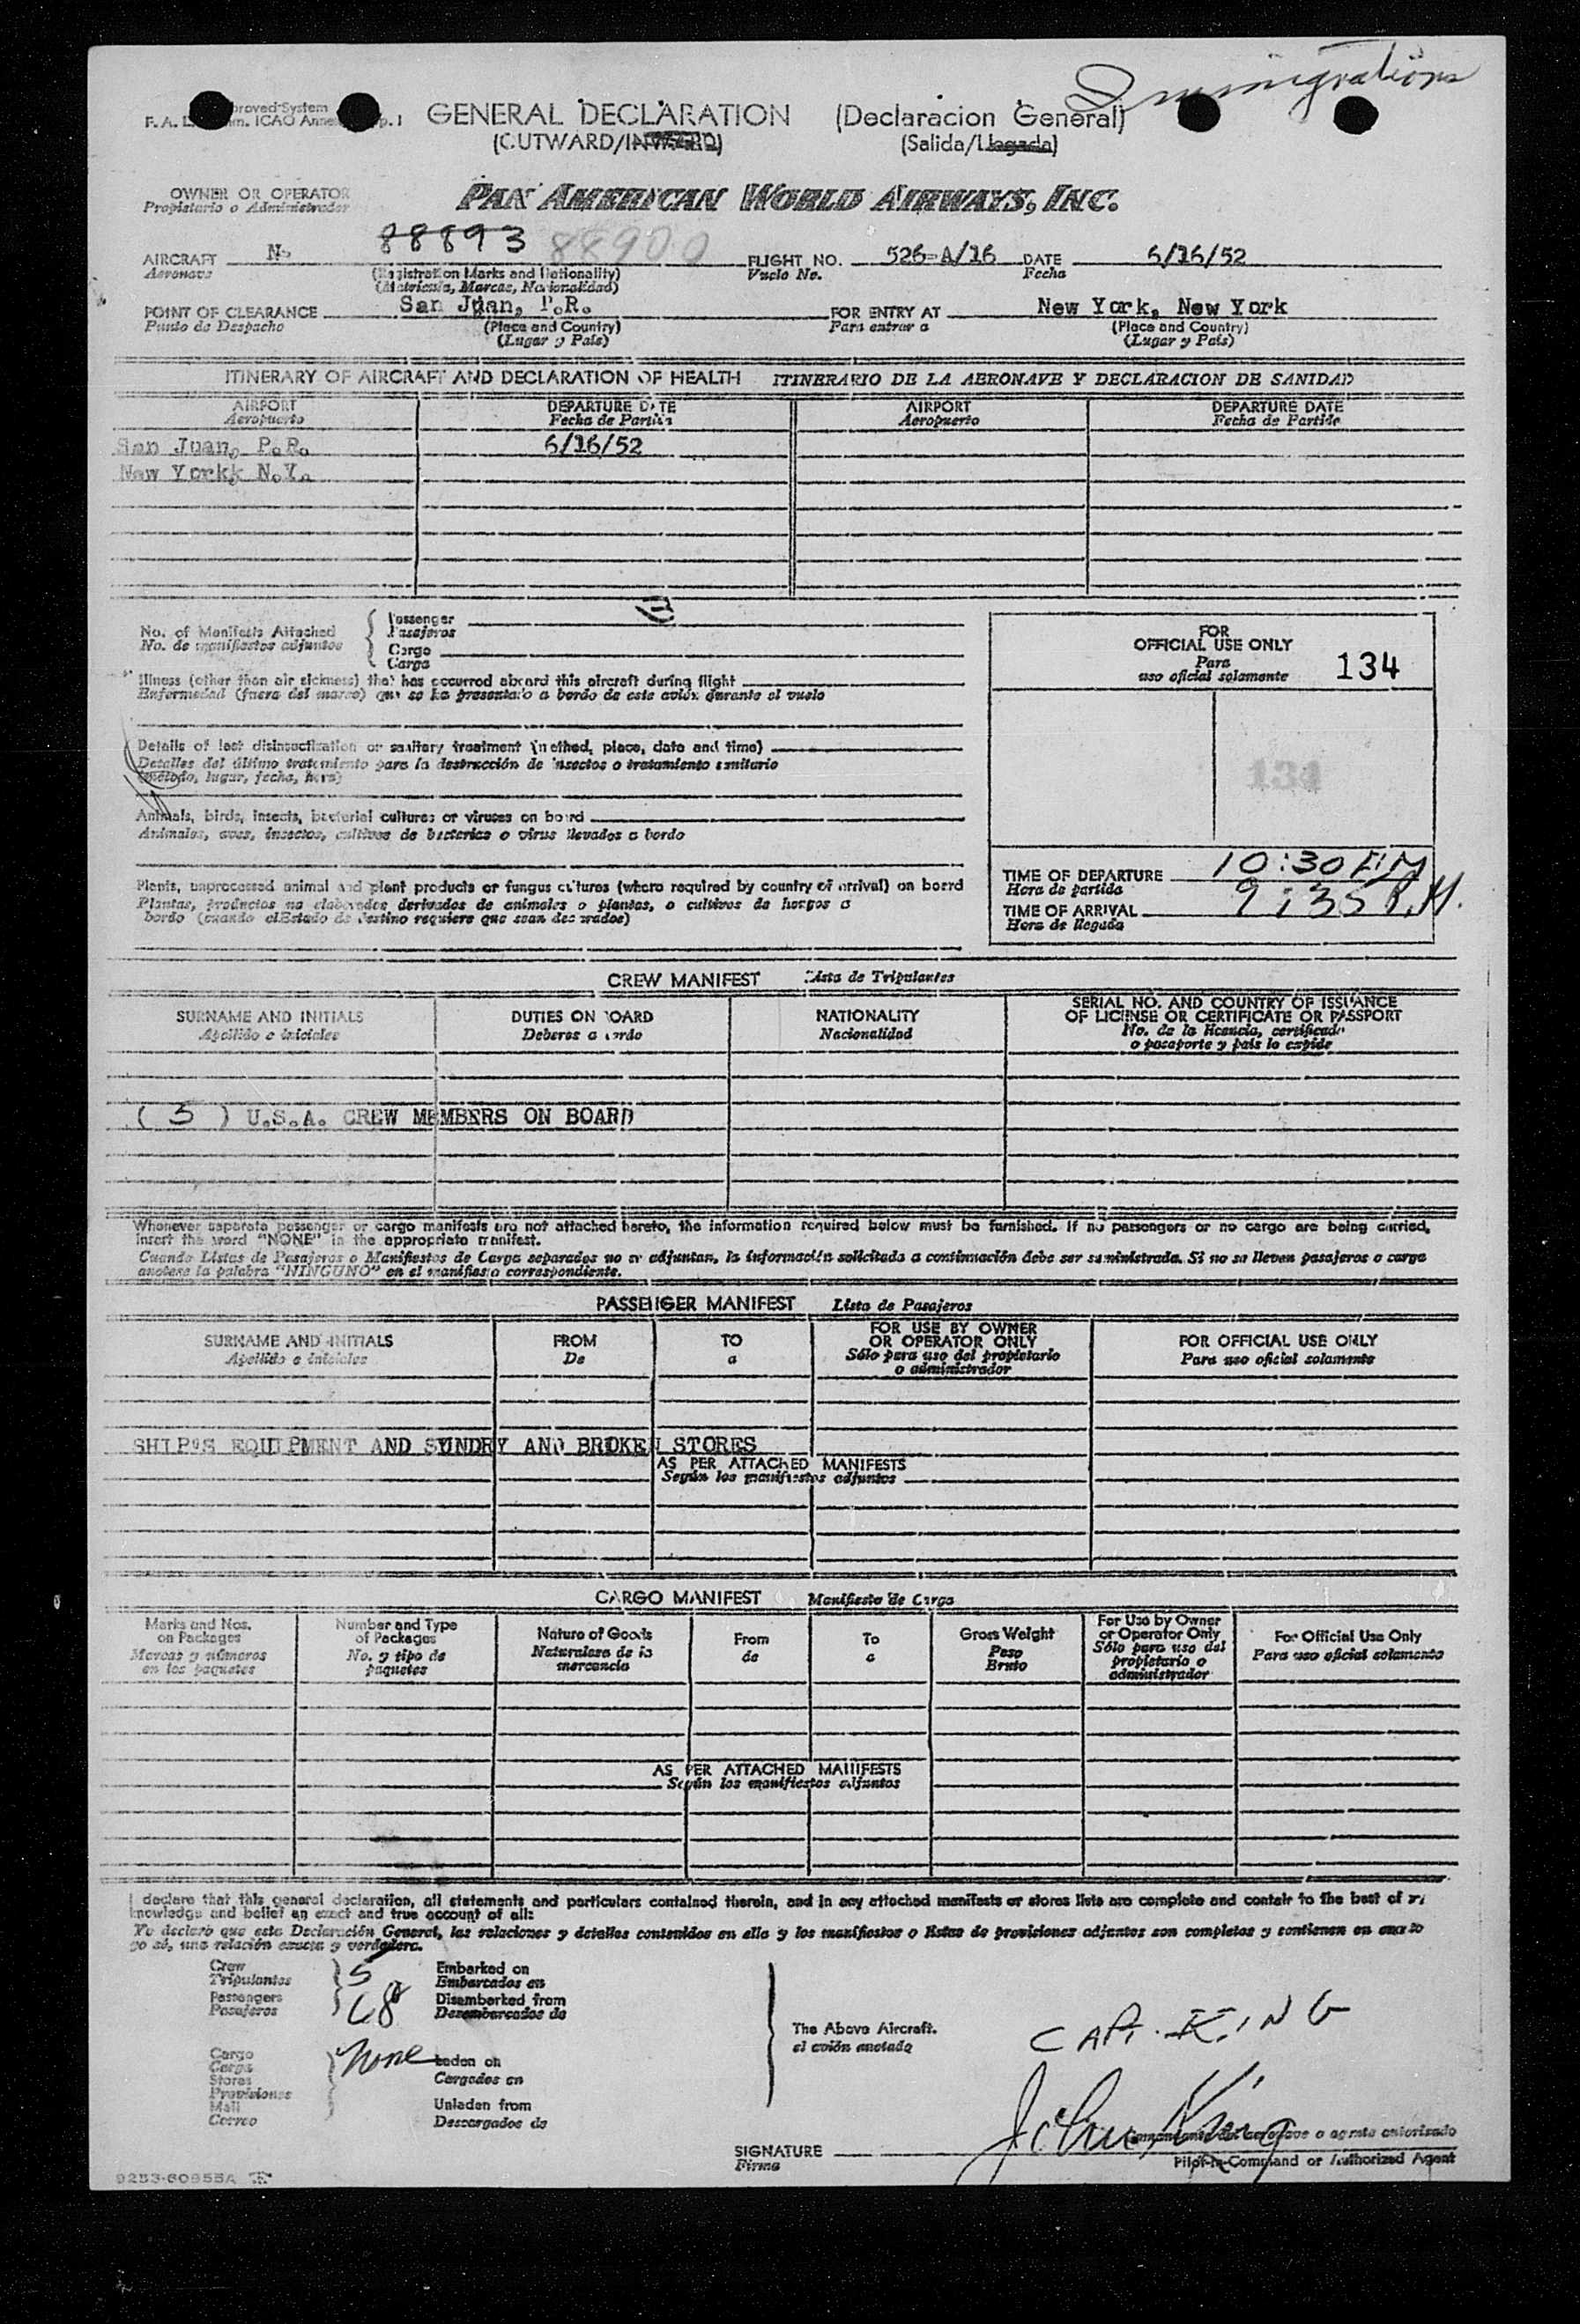 Immigration
proved System
GENERAL DECLARATION (Declaracion General)
F. A. L. ICAO Anne p. 1
(OUTWARD/INWARD) (Salida/Llegada)
OWNER OR OPERATOR
Propietario o Administrador
PAN AMERICAN WORLD AIRWAYS, INC.
AIRCRAFT N- 88893 88900 FLIGHT NO. 526-A/16 DATE 6/16/52
Aeronave (Registration Marks and Nationality) Vuelo No. Fecha
(Matricula, Marcas, Nacionalidad)
POINT OF CLEARANCE San Juan, P.R. FOR ENTRY AT New York, New York
Punto de Despacho (Place and Country) Para entrar a (Place and Country)
(Lugar y País) (Lugar y País)
ITINERARY OF AIRCRAFT AND DECLARATION OF HEALTH ITINERARIO DE LA AERONAVE Y DECLARACION DE SANIDAD
AIRPORT DEPARTURE DATE AIRPORT DEPARTURE DATE
Aeropuerto Fecha de Partida Aeropuerto Fecha de Partida
San Juan, P.R. 6/16/52
New Yorkk N.Y.
No. of Manifests Attached
No. de manifiestos adjuntos
Passenger
Pasajeros
Cargo
Carga
Illness (other than air sickness) that has occurred aboard this aircraft during flight
Enfermedad (fuera del mareo) que se ha presentado a bordo de este avión durante el vuelo
Details of last disinsectization or sanitary treatment (method, place, date and time)
Detalles del último tratamiento para la destrucción de insectos o tratamiento sanitario
(método, lugar, fecha, hora)
Animals, birds, insects, bacterial cultures or viruses on board
Animales, aves, insectos, cultivos de bacterias o virus llevados a bordo
Plants, unprocessed animal and plant products or fungus cultures (where required by country of arrival) on board
Plantas, productos no elaborados derivados de animales o plantas, o cultivos de hongos a
bordo (cuando el Estado de destino requiere que sean declarados)
FOR
OFFICIAL USE ONLY
Para
uso oficial solamente
134
134
TIME OF DEPARTURE 10:30 P.M
Hora de partida
TIME OF ARRIVAL 9:35 P.M.
Hora de llegada
CREW MANIFEST Lista de Tripulantes
SURNAME AND INITIALS DUTIES ON BOARD NATIONALITY SERIAL NO. AND COUNTRY OF ISSUANCE
OF LICENSE OR CERTIFICATE OR PASSPORT
Apellido e iniciales Deberes a bordo Nacionalidad No. de la licencia, certificado
o pasaporte y país lo expide
( 5 ) U.S.A. CREW MEMBERS ON BOARD
Whenever separate passenger or cargo manifests are not attached hereto, the information required below must be furnished. If no passengers or no cargo are being carried,
insert the word "NONE" in the appropriate manifest.
Cuando Listas de Pasajeros o Manifiestos de Carga separados no se adjuntan, la información solicitada a continuación debe ser suministrada. Si no se lleven pasajeros o carga
anótese la palabra "NINGUNO" en el manifiesto correspondiente.
PASSENGER MANIFEST Lista de Pasajeros
SURNAME AND INITIALS FROM TO FOR USE BY OWNER
OR OPERATOR ONLY FOR OFFICIAL USE ONLY
Apellido e iniciales De a Sólo para uso del propietario
o administrador Para uso oficial solamente
SHIP'S EQUIPMENT AND SUNDRY AND BROKEN STORES
AS PER ATTACHED MANIFESTS
Según los manifiestos adjuntos
CARGO MANIFEST Manifiesto de Carga
Marks and Nos.
on Packages
Marcas y números
en los paquetes
Number and Type
of Packages
No. y tipo de
paquetes
Nature of Goods
Naturaleza de la
mercancía
From
de
To
a
Gross Weight
Peso
Bruto
For Use by Owner
or Operator Only
Sólo para uso del
propietario o
administrador
For Official Use Only
Para uso oficial solamente
AS PER ATTACHED MANIFESTS
Según los manifiestos adjuntos
I declare that this general declaration, all statements and particulars contained therein, and in any attached manifests or stores lists are complete and contain to the best of my
knowledge and belief an exact and true account of all:
Yo declaro que esta Declaración General, las relaciones y detalles contenidos en ella y los manifiestos o listas de provisiones adjuntos son completos y contienen en cuanto
yo sé, una relación exacta y verdadera.
Crew 5 Embarked on
Tripulantes Embarcados en
Passengers 68 Disembarked from
Pasajeros Desembarcados de
The Above Aircraft.
el avión anotado
CAPT. KING
Cargo None Laden on
Carga
Stores Cargados en
Provisiones
Mail Unladen from
Correo Descargados de
SIGNATURE John King
Firma
Comandante del aeronave o agente autorizado
Pilot-in-Command or Authorized Agent
9253-60855A